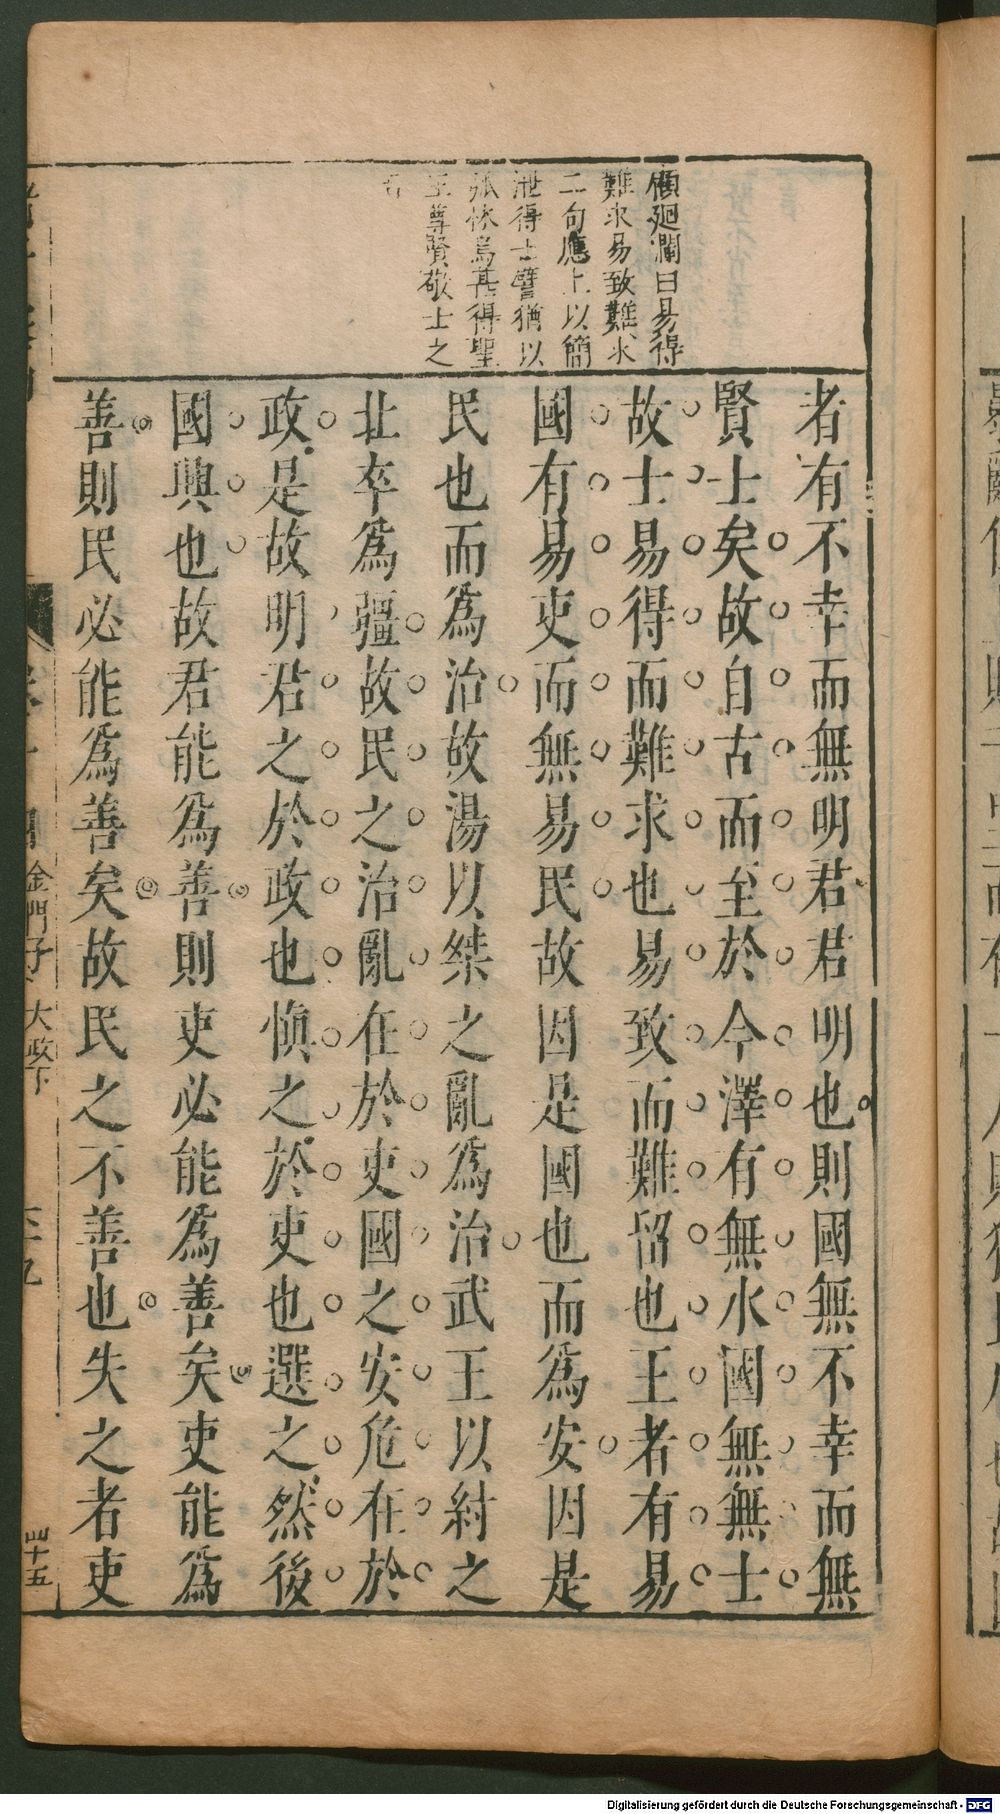 顧廻瀾曰易得
難求易致難求
二句應上以簡
泄得士譬猶以
弧怵鳥甚得聖
王尊賢敬士之
者有不幸而無明君君明也則國無不幸而無
賢士矣故自古而至於今澤有無水國無無士
故士易得而難求也易致而難留也王者有易
國有易吏而無易民故因是國也而為安因是
民也而為治故湯以桀之亂為治武王以紂之
北卒為疆故民之治亂在於吏國之安危在於
政是故明君之於政也慎之於吏也選之然後
國興也故君能為善則吏必能為善矣吏能為
善則民必能為善矣故民之不善也失之者吏
金門子 大政下
四十五
Digitalisierung gefördert durch die Deutsche Forschungsgemeinschaft - DFG